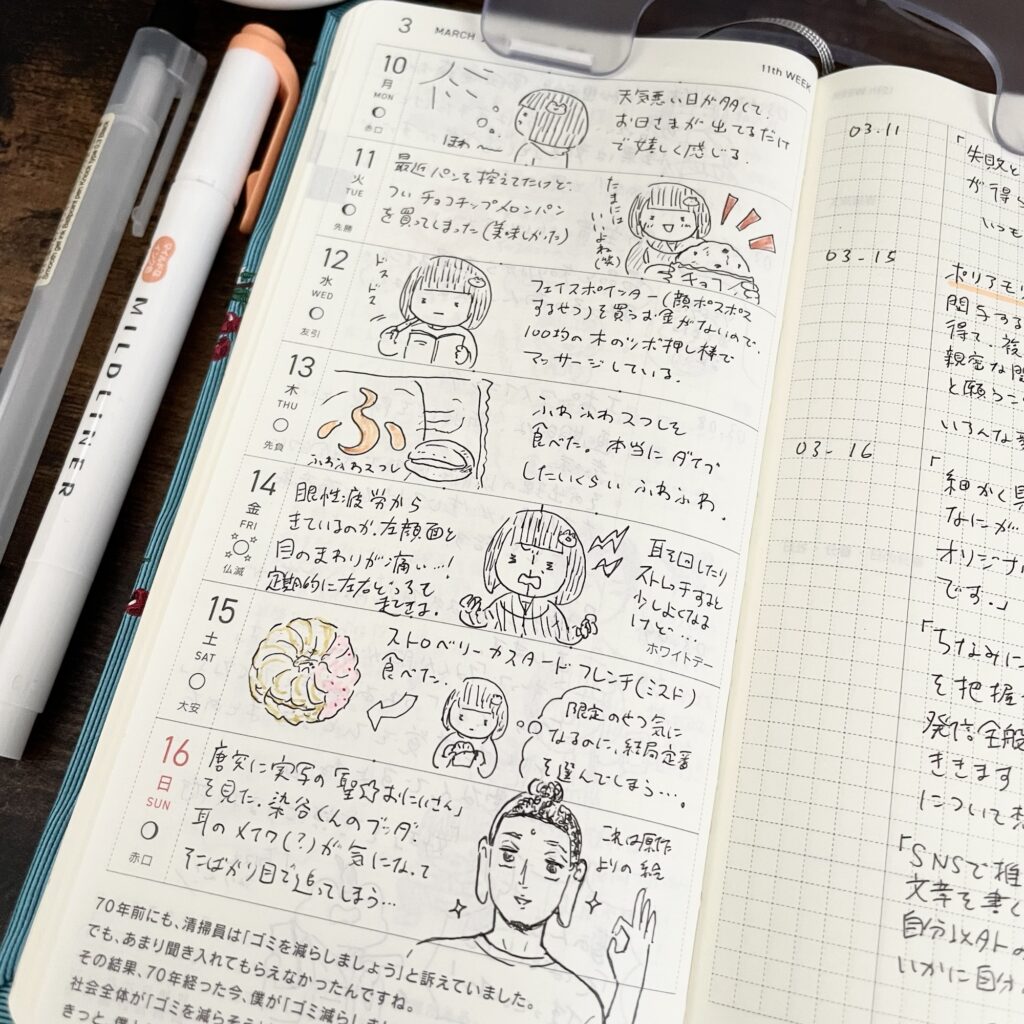 3 MARCH
11th WEEK
10
月
MON
赤口
ほわ〜
天気悪い日が多くて、
お日さまが出てるだけ
で嬉しく感じる。
11
火
TUE
先勝
最近パンを控えてたけど、
ついチョコチップメロンパン
を買ってしまった(美味しかった)
たまには
いいよね(笑)
12
水
WED
友引
ドス
ドス
フェイスポインター(顔ポスポス
するやつ)を買うお金がないので、
100均の木のツボ押し棒で
マッサージしている。
13
木
THU
先負
ふ
ふわふわスフレ
ふわふわスフレを
食べた。本当にダイブ
したいくらいふわふわ。
14
金
FRI
仏滅
眼性疲労から
きているのか、左顔面と
目のまわりが痛い…!
定期的に左右どっちて
耳を回したり
ストレッチすると
少しよくなる
けど…
ホワイトデー
15
土
SAT
大安
ストロベリーカスタードフレンチ(ミスド)
食べた。
限定のやつ気に
なるのに、結局定番
を選んでしまう…。
16
日
SUN
赤口
唐突に実写の「聖☆おにいさん」
を見た。染谷くんのブッダ!
耳のメイク(?)が気になって
そこばかり目で追ってしまう…
これは原作
よりの絵
70年前にも、清掃員は「ゴミを減らしましょう」と訴えていました。
でも、あまり聞き入れてもらえなかったんですね。
その結果、70年経った今、僕が「ゴミ減らしま
社会全体が「ゴミを減らそう
きっと、僕
03.11
「失敗と
が得ら
いつも
03-15
ポリアモ
関与する
得て、複
親密な関
と願うこ
いろんな
03-16
「細かく
なにが
オリジナル
です。」
「ちなみに
を把握
発信全般
ききます
について
「SNSで
文章を書く
自分以外の
いかに自分
MILDLINER
マイルドな